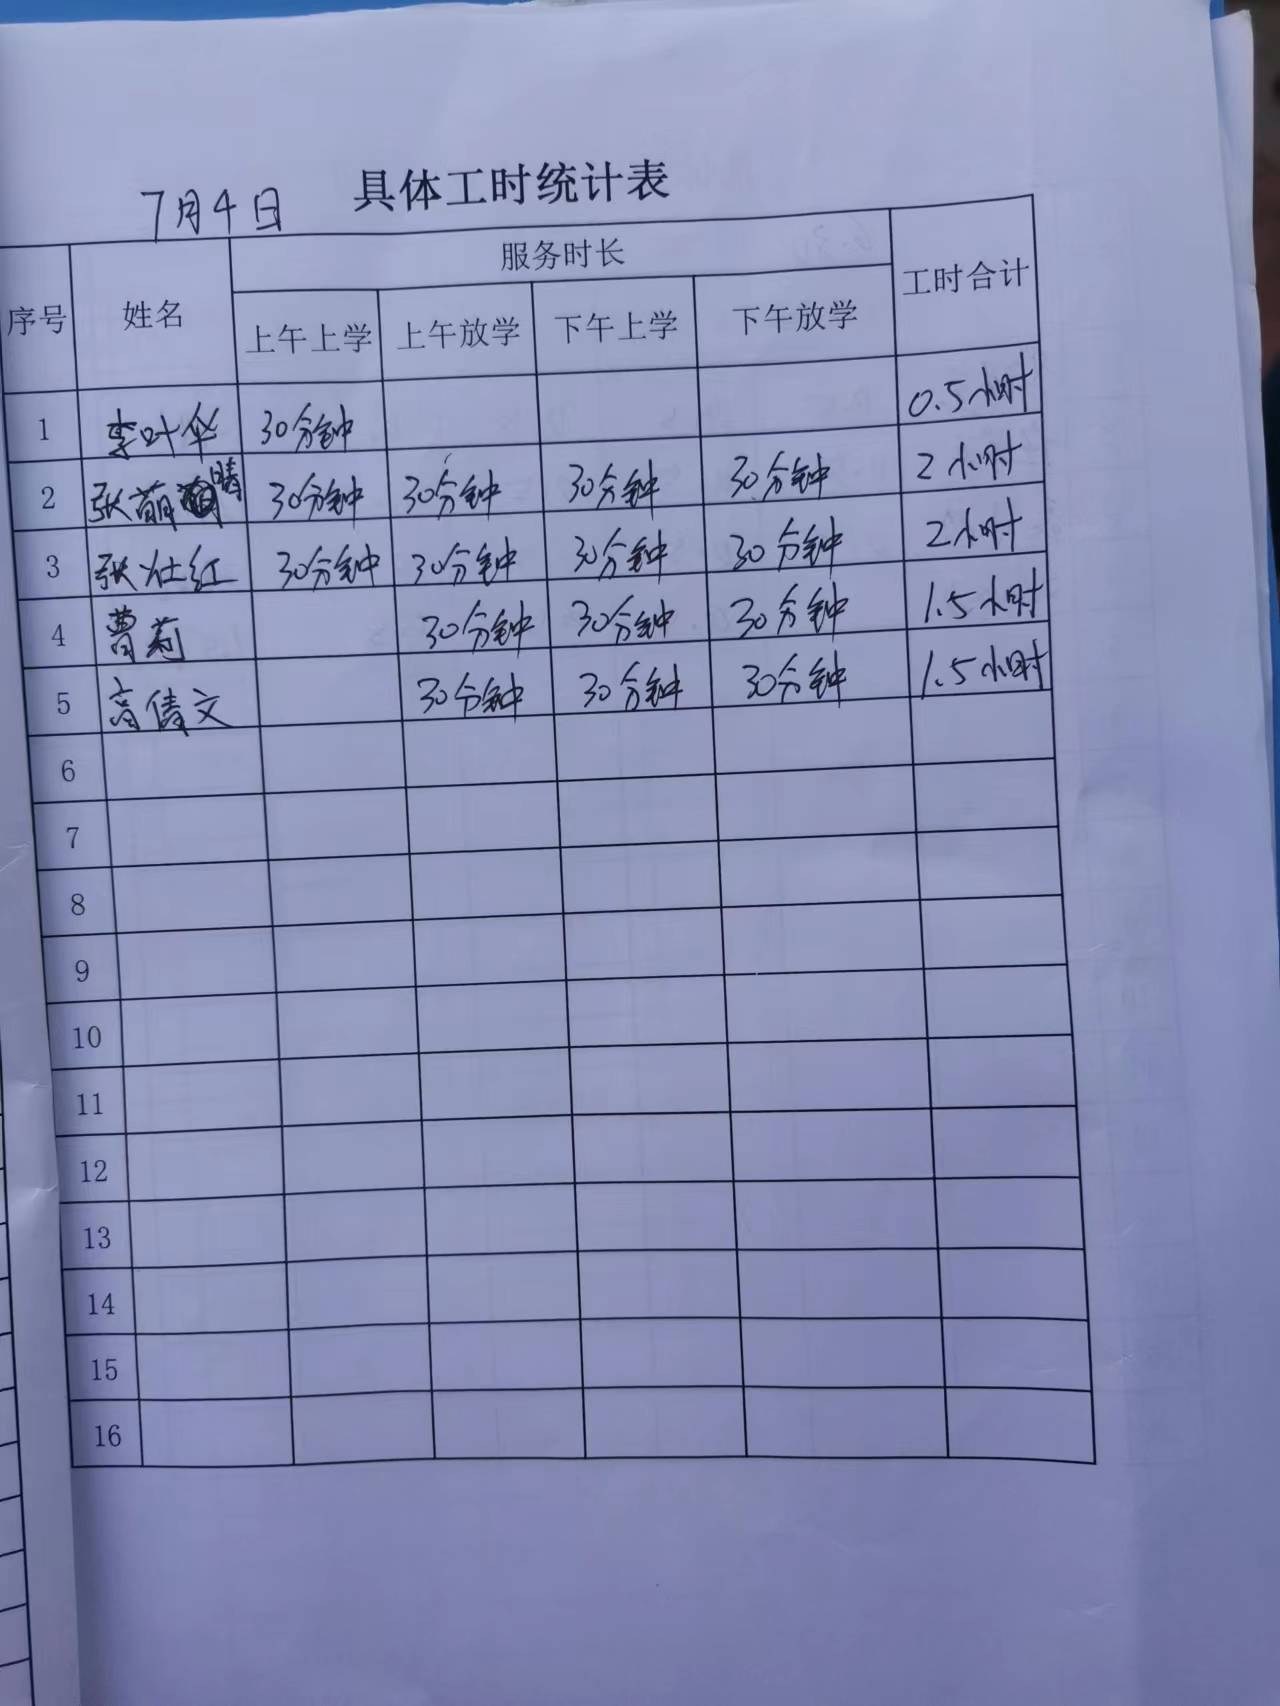 7月4日 具体工时统计表
序号 姓名 服务时长 工时合计
上午上学 上午放学 下午上学 下午放学
1 李叶华 30分钟 0.5小时
2 张萌晴 30分钟 30分钟 30分钟 30分钟 2小时
3 张灶红 30分钟 30分钟 30分钟 30分钟 2小时
4 曹莉 30分钟 30分钟 30分钟 1.5小时
5 高倩文 30分钟 30分钟 30分钟 1.5小时
6
7
8
9
10
11
12
13
14
15
16